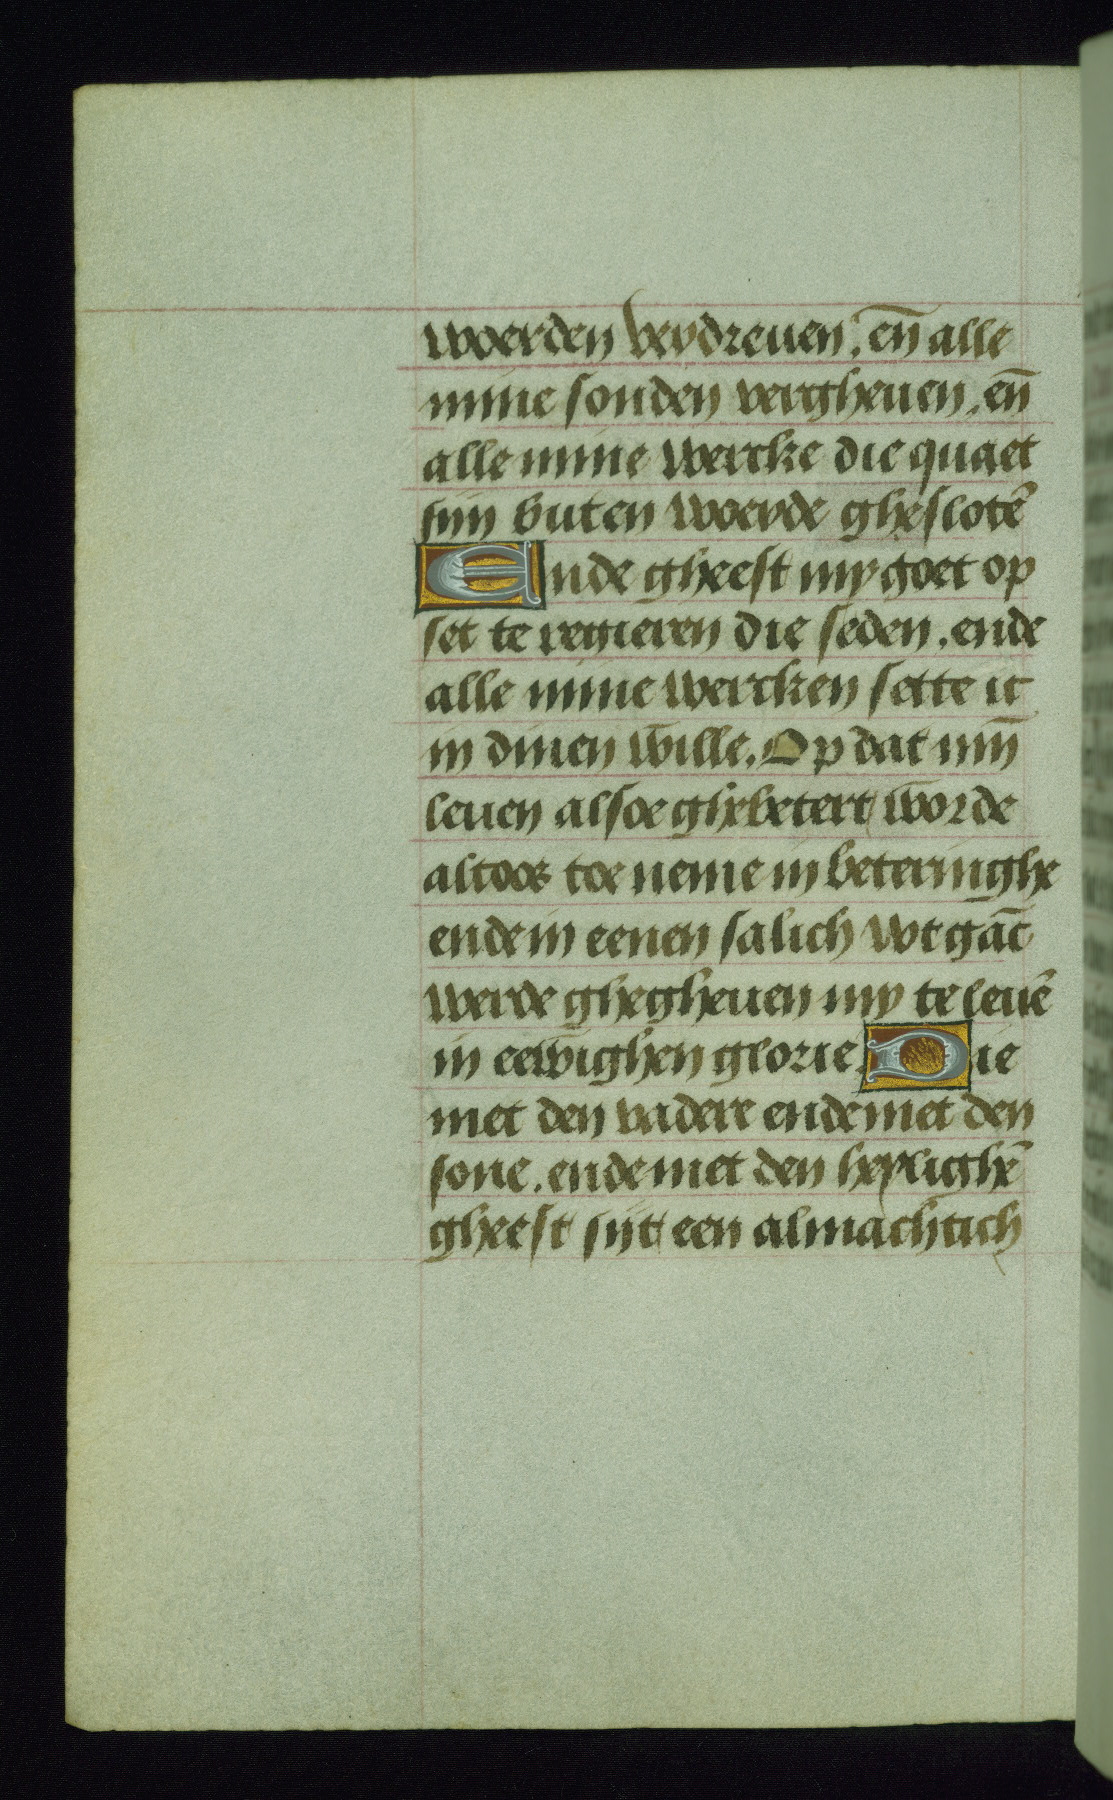 woerden verdreuen. en̄ alle
mine sonden vergheuen. en̄
alle mine wercke die quaet
sijn buten woerde ghesslotē
Ende gheest my goet op
set te regieren die seden. ende
alle mine wercken sette ic
in dinen wille. Op dat mijn̄
leuen alsoe ghebetert worde
altoos toe neme in beteringhe
ende in eenen salich wtgāc
werde ghegheuen my te leuē
in eewighen glorie. Die
met den vadere ende met den
sone. ende met den heylighē
gheest sijt een almachtich